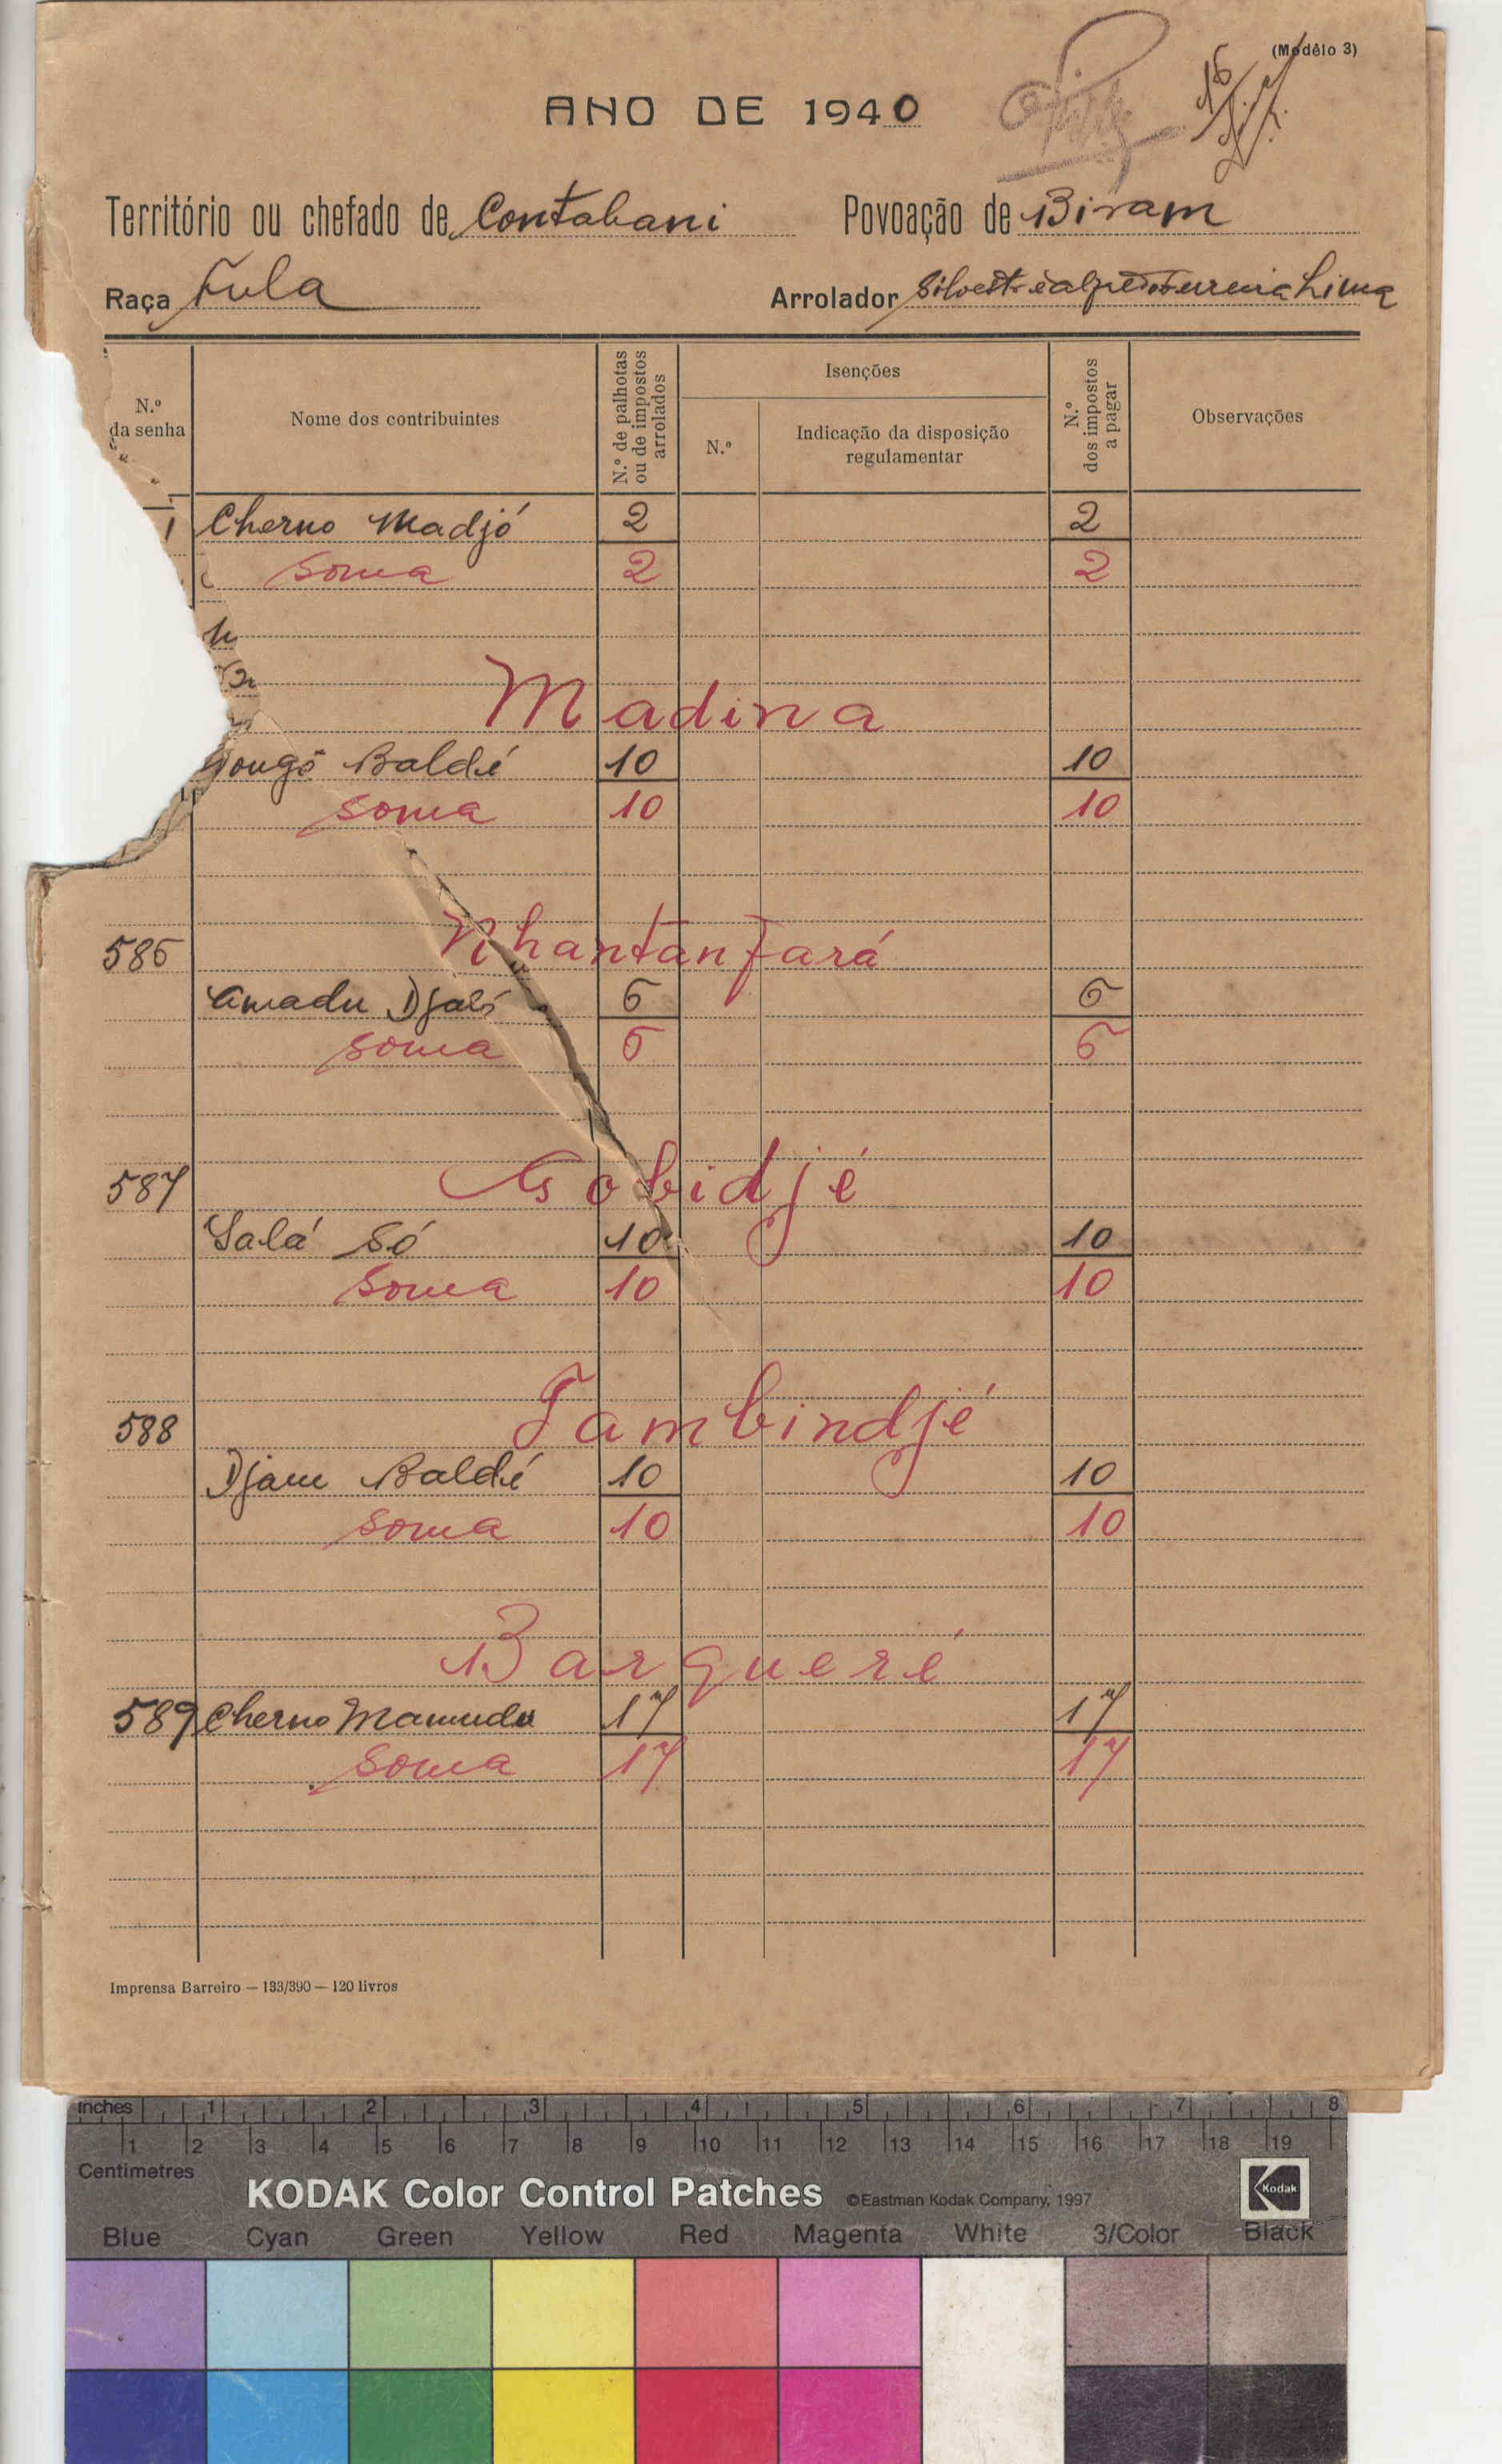 (Modêlo 3)
ANO DE 1940
Território ou chefado de Contabani Povoação de Biram
Raça Fula Arrolador Silvestre Alfredo Pereira Lima
N.º da senha
Nome dos contribuintes
N.º de palhotas ou de impostos arrolados
Isenções
N.º
Indicação da disposição regulamentar
N.º dos impostos a pagar
Observações
Cherno Madjó 2 2
Soma 2 2
Madina
Baldé 10 10
Soma 10 10
586 Nhantanfará
Amadu Djaló 6 6
Soma 6 6
587 Gobidjé
Salá Só 10 10
Soma 10 10
588 Tambindjé
Djam Baldé 10 10
Soma 10 10
Barqueré
589 Cherno Mamudu 17 17
Soma 17 17
Imprensa Barreiro — 133/390 — 120 livros
inches 1 2 3 4 5 6 7 8
1 2 3 4 5 6 7 8 9 10 11 12 13 14 15 16 17 18 19
Centimetres
KODAK Color Control Patches ©Eastman Kodak Company, 1997 Kodak
Blue Cyan Green Yellow Red Magenta White 3/Color Black